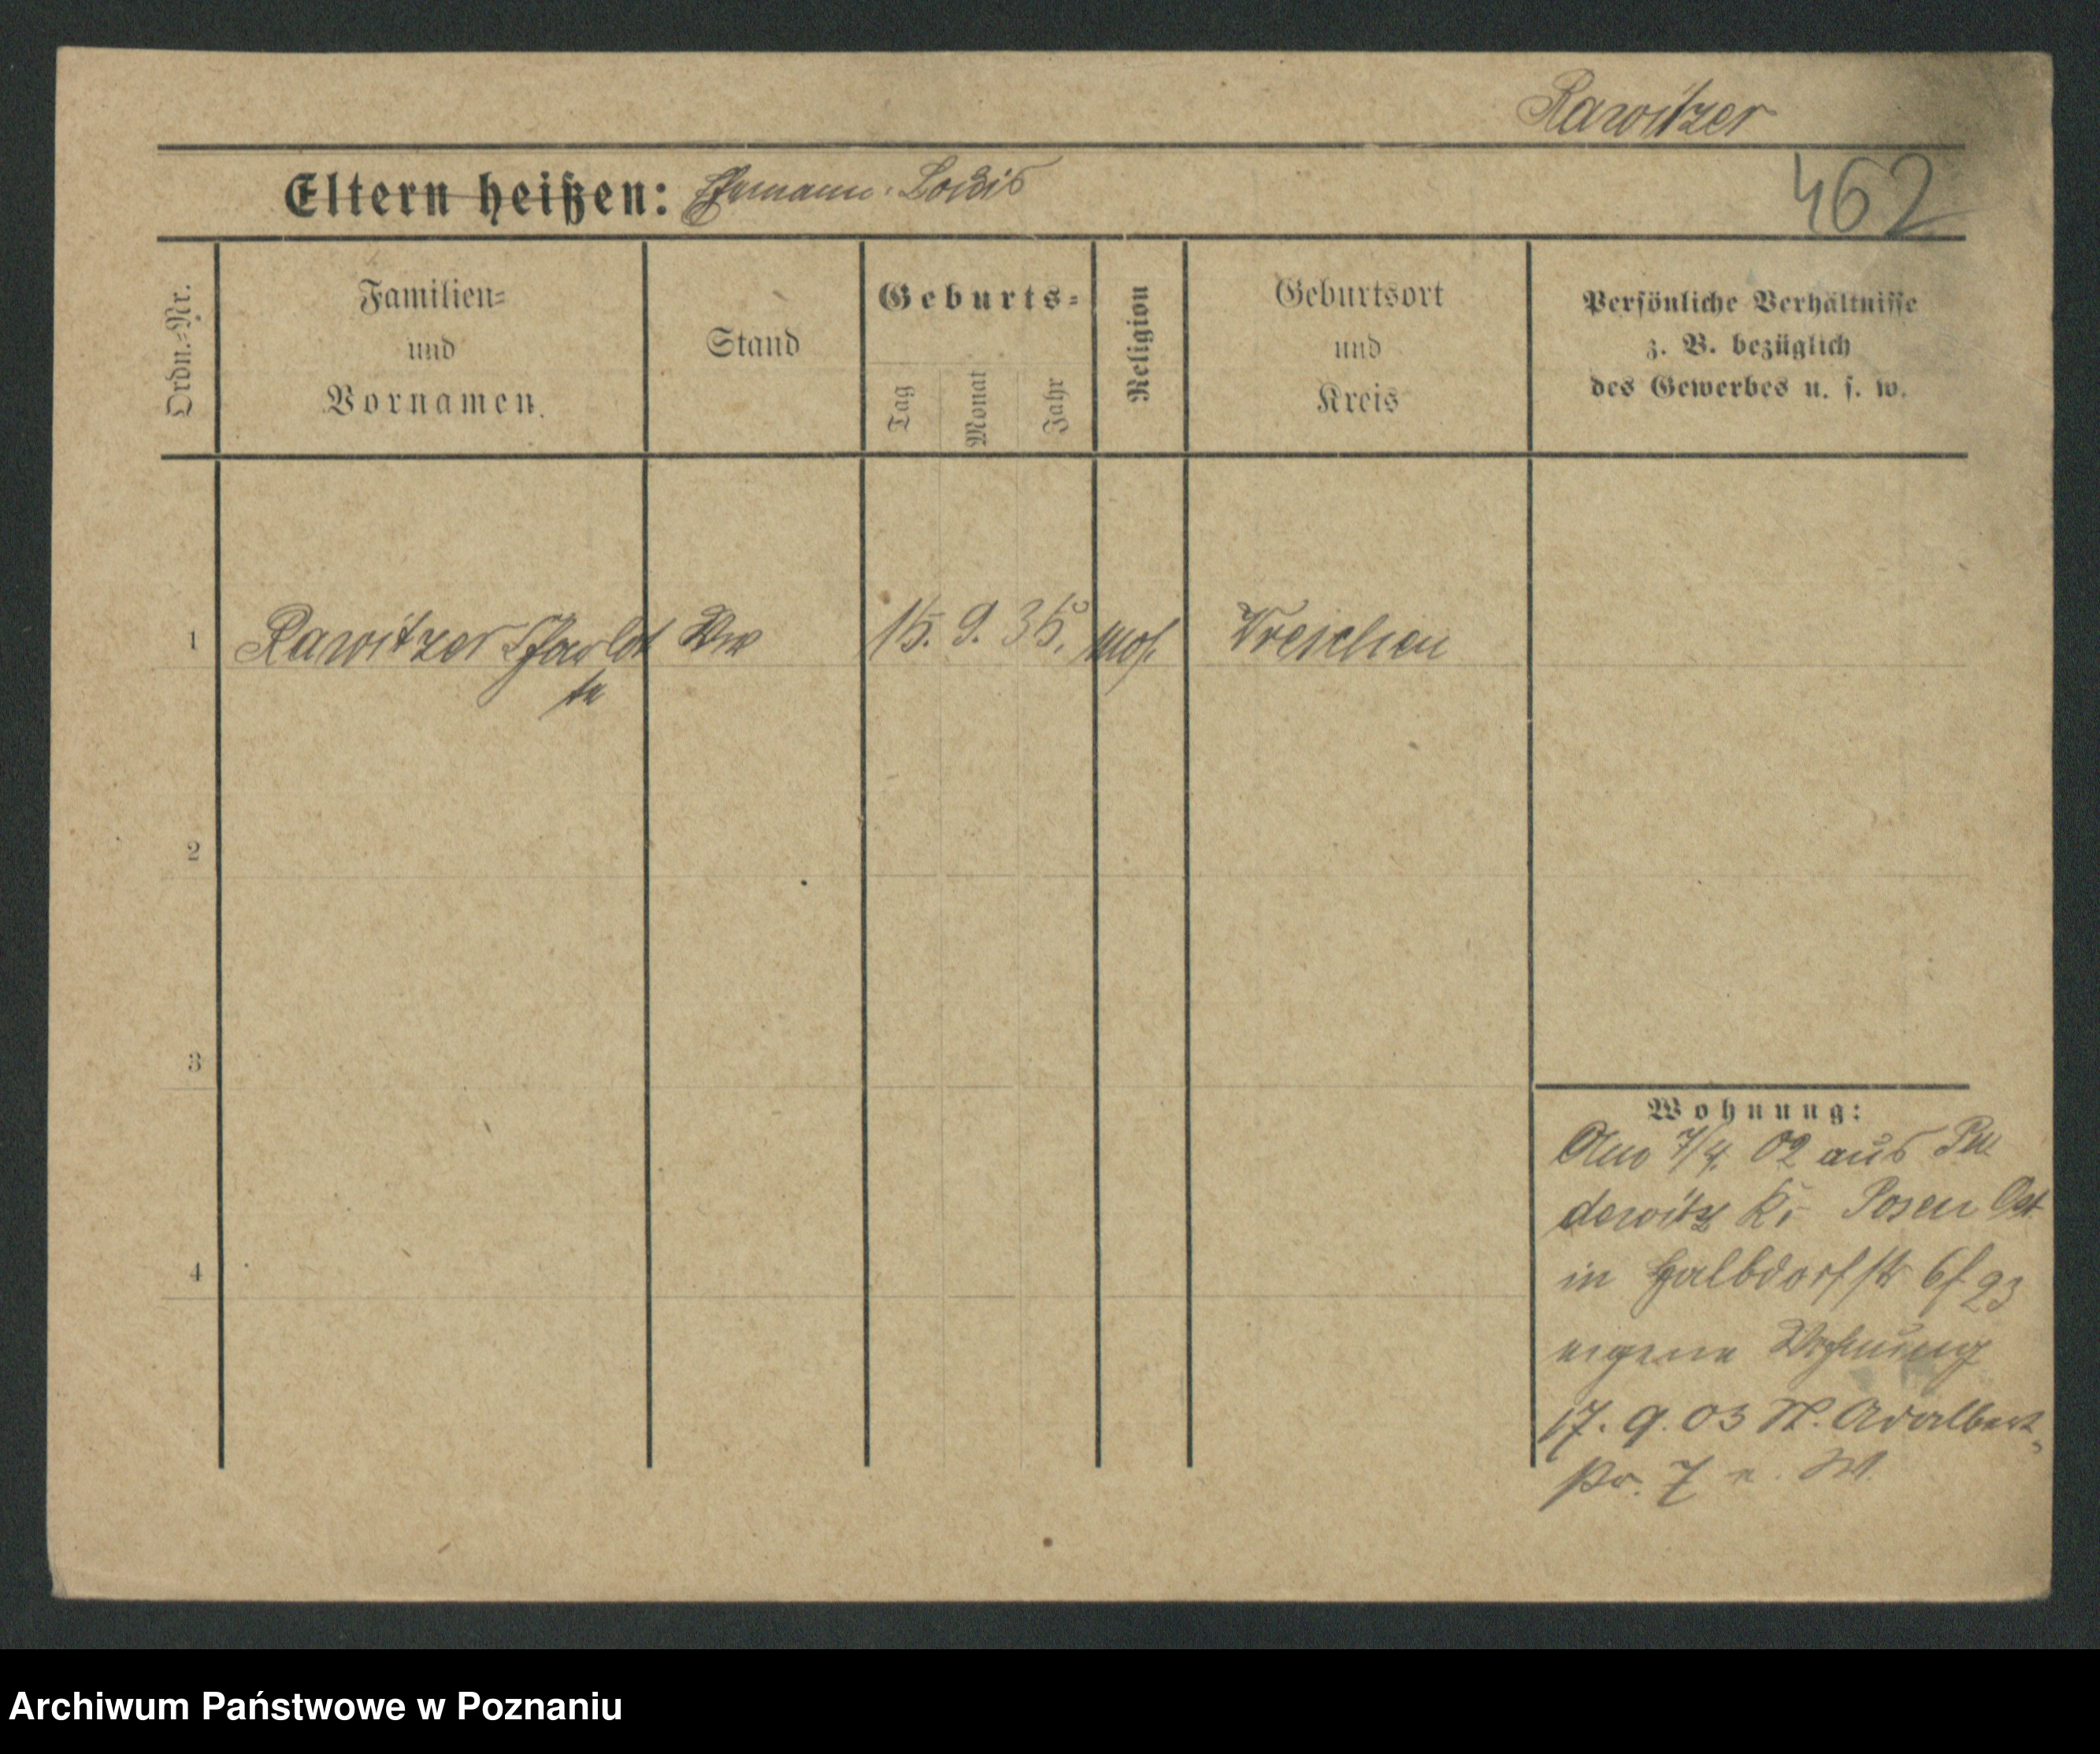 Rawitzer
462
Eltern heißen: Ehemann: Louis
Ordn.-Nr.
Familien-
und
Vornamen.
Stand
Geburts-
Tag
Monat
Jahr
Religion
Geburtsort
und
Kreis
Persönliche Verhältnisse
z. B. bezüglich
des Gewerbes u. s. w.
1 Rawitzer Charlot Ww 15. 9. 35. mos. Wreschen
te
2
3
4
Wohnung:
Am 7/4. 02 aus Pu
dewitz Kr Posen Ost
in Halbdorfstr
eigene Wohnung
17. 9. 03 St. Adalbert
str. 7 e. W.
Archiwum Państwowe w Poznaniu